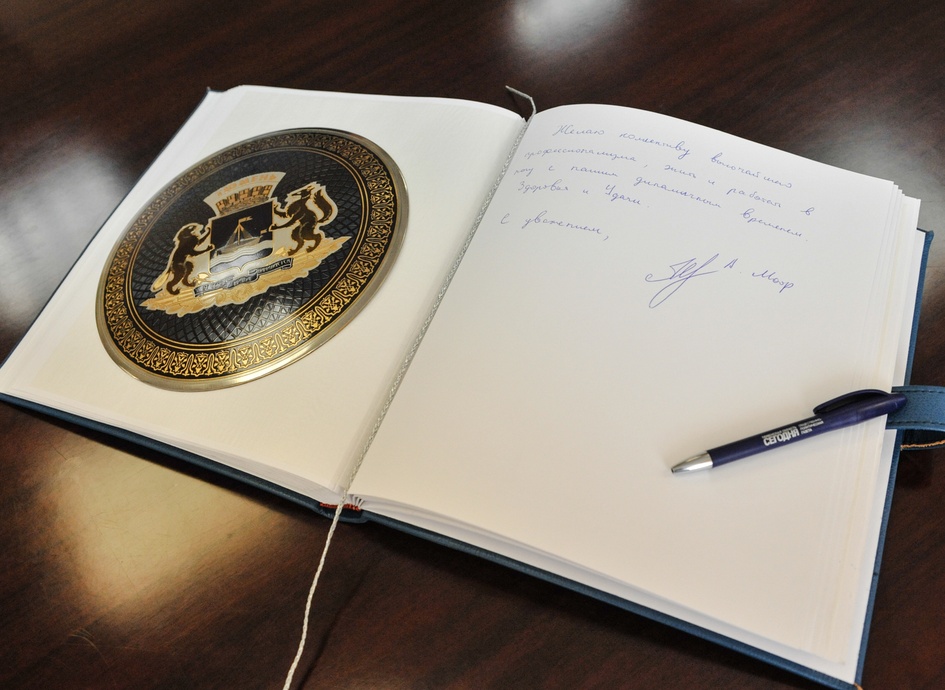 Желаю коллективу высочайшего
профессионализма, жить и работать в
ногу с нашим динамичным временем.
Здоровья и Удачи.
С уважением,
А. Моор
СЕГОДНЯ